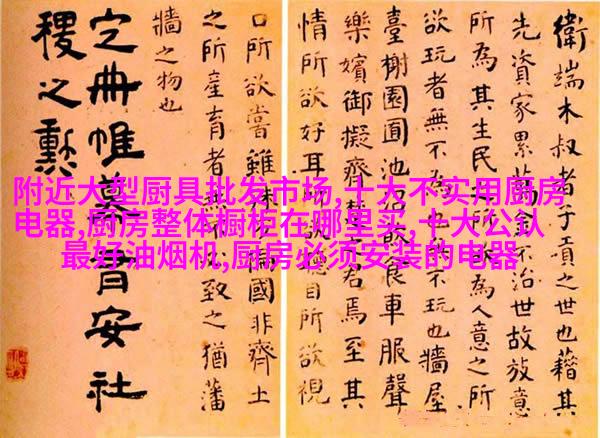 衛端木叔者子貢之世也藉其
先資家累萬金不治世故放意
所為其生民之所為人意之所
欲玩者無不為也不玩也牆屋
臺榭園囿池沼飲食車服聲
樂嬪御擬齊楚之君焉至其
情所欲好耳所欲聽目所欲視
口所欲嘗雖殊方偏國非齊土
之所產育者無不必致之猶藩
牆之物也
定冊帷幕有安社
稷之勲
附近大型厨具批发市场,十大不实用厨房
电器,厨房整体橱柜在哪里买,十大公认
最好油烟机,厨房必须安装的电器